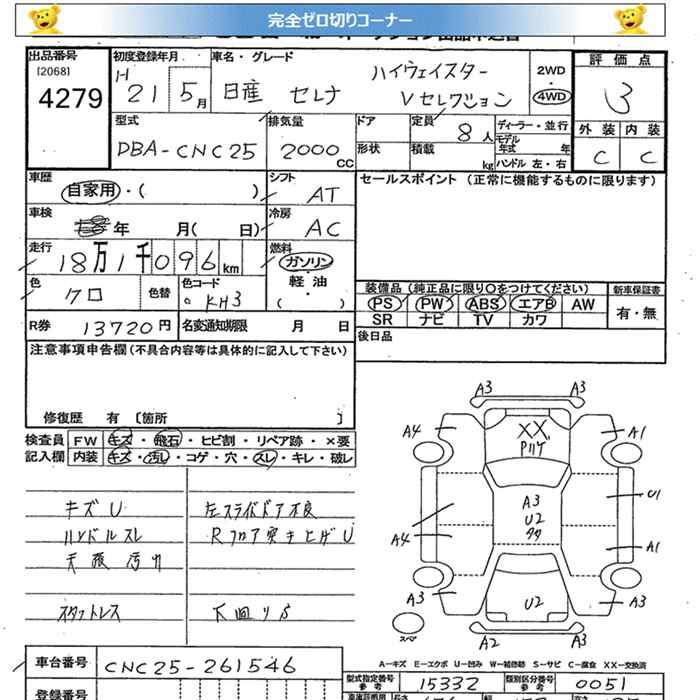 完全ゼロ切りコーナー
出品番号
[2068]
4279
初度登録年月
H 21 5月
車名・グレード
日産 セレナ
ハイウェイスター
Vセレクション
2WD
・
4WD
評価点
3
外装 内装
C C
型式
DBA-CNC25
排気量
2000 CC
ドア
形状
定員 8人
積載 kg
ディーラー・並行
モデル年式 年
ハンドル 左・右
車歴
自家用・( )
シフト
AT
車検
年 月( 日)
冷房
AC
走行
18万1千096km
燃料
ガソリン
・
軽油
・
( )
色
クロ
色替
色コード
KH3
R券 13720円
名変通知期限 月 日
セールスポイント (正常に機能するものに限ります)
装備品 (純正品に限り〇をつけてください)
PS PW ABS エアB AW
SR ナビ TV カワ
新車保証書
有・無
後日品
注意事項申告欄(不具合内容等は具体的に記入して下さい)
修復歴 有 〔箇所 〕
検査員記入欄
FW キズ・飛石・ヒビ割・リペア跡・×要
内装 キズ・汚し・コゲ・穴・スレ・キレ・破レ
キズU
ハンドルスレ
天張汚れ
スタットレス
左スライドドア不良
Rフロア突き上げU
下回りS
A3 A3
A4 XX A1
Pハゲ
A3
U2
タタ
U1
A4 A1
A3 U2 A3
スペア
A2 A3
A-キズ E-エクボ U-凹み W-補修跡 S-サビ C-腐食 XX-交換済
車台番号
CNC25-261546
登録番号
型式指定番号
参考
15332
類別区分番号
参考
0051